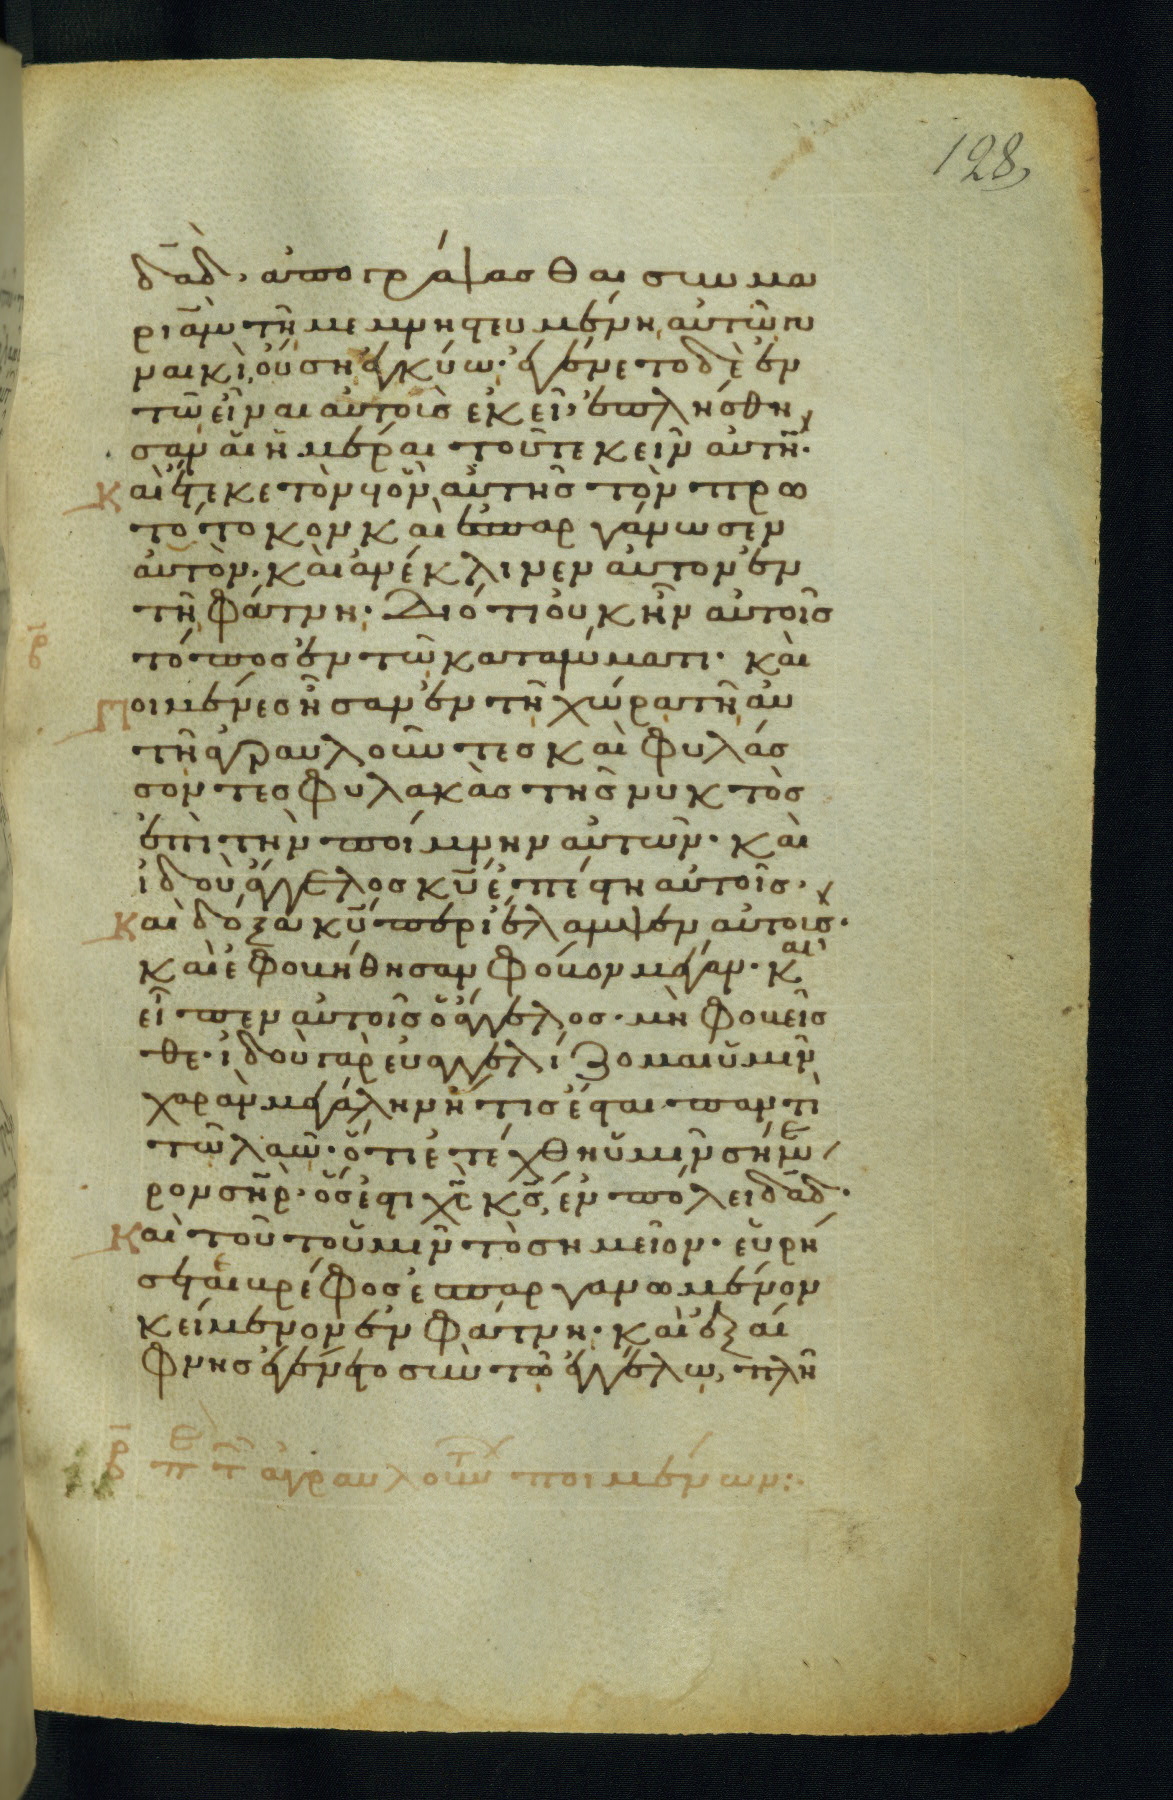 128
δᾱδ· ἀπογράψασθαι σὺν μα
ριὰμ τῆ μεμνηστευμένη αὐτῶ γυ
ναικὶ, οὔση ἐγκύω· ἐγένετο δὲ ἐν
τῶ εἶναι αὐτοὺς ἐκεῖ· ἐπλήσθη
σαν αἱ ἡμέραι τοῦ τεκεῖν αὐτήν·
Καὶ ἔτεκε τὸν υἱὸν αὐτῆς τὸν πρω
τότοκον καὶ ἐσπαργάνωσεν
αὐτὸν· καὶ ἀνέκλινεν αὐτον ἐν
τῆ φάτνη· Διότι οὐκ ἦν αὐτοῖς
β̄ τόπος ἐν τῶ καταλύματι· καὶ
Ποιμένες ἦσαν ἐν τῆ χώρα τῆ αὐ
τῆ ἀγραυλοῦντες καὶ φυλάσ
σοντες φυλακὰς τῆς νυκτὸς
ἐπὶ τὴν ποίμνην αὐτῶν· καὶ
ἰδοὺ ἄγγελος κ̄υ ἐπέστη αὐτοῖς·
Καὶ δόξα κ̄υ περιέλαμψεν αὐτοὺς·
καὶ ἐφοβήθησαν φόβον μέγαν· καὶ
εἶπεν αὐτοῖς ὁ ἄγγελος· μὴ φοβεῖσ
θε· ἰδοὺ γὰρ εὐαγγελίζομαι ὑμῖν
χαρὰν μεγάλην ἥτις ἔσται παντὶ
τῶ λαῶ· ὅτι ἐτέχθη ὑμῖν σήμε
ρον σ̄ηρ· ὅς ἐστι χ̄ς κ̄ς, ἐν πόλει δᾱδ·
Καὶ τοῦτο ὑμῖν τὸ σημεῖον· εὑρή
σετε βρέφος ἐσπαργανωμένον
κείμενον ἐν φάτνη· καὶ ἐξαί
φνης ἐγένετο σὺν τῶ ἀγγέλω, πλῆ
β̄ πε τ ἀγραυλούντ ποιμένων:·